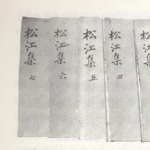 松江集 四
松江集 五
松江集 六
松江集 七